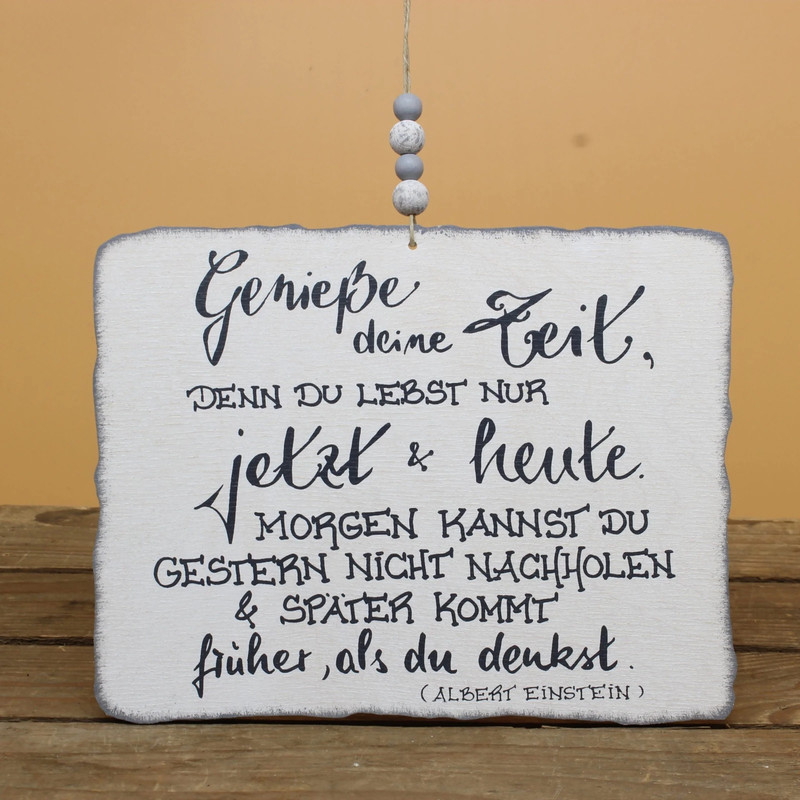 Genieße
deine Zeit,
DENN DU LEBST NUR
jetzt & heute.
MORGEN KANNST DU
GESTERN NICHT NACHHOLEN
& SPÄTER KOMMT
früher, als du denkst.
(ALBERT EINSTEIN)